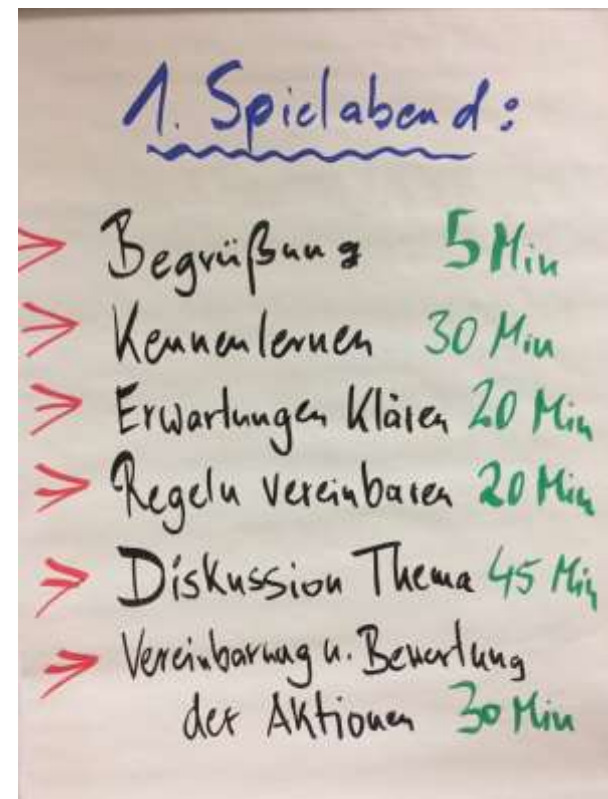 1. Spielabend:
Begrüßung 5 Min
Kennenlernen 30 Min
Erwartungen Klären 20 Min
Regeln vereinbaren 20 Min
Diskussion Thema 45 Min
Vereinbarung u. Bewertung
der Aktionen 30 Min